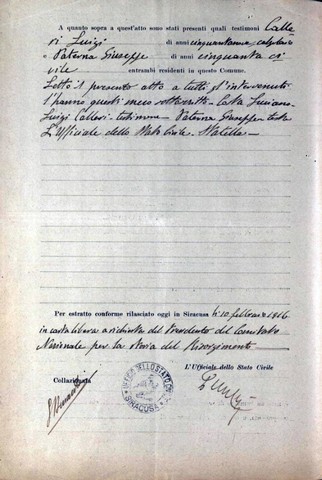 A quanto sopra a quest'atto sono stati presenti quali testimoni Calle
ri Luigi di anni cinquantanni calzolaio
e Paterna Giuseppe di anni cinquanta ci
vile entrambi residenti in questo Comune.
Letto il presente atto a tutti gl'intervenuti
l'hanno questi meco sottoscritto Luciano
Luigi Calleri testimone - Paterna Giuseppe teste
L'Ufficiale dello Stato Civile -
Per estratto conforme rilasciato oggi in Siracusa li 10 febbraio 1916
in carta libera a richiesta del Presidente del Comitato
Nazionale per la storia del Risorgimento
L'Ufficiale dello Stato Civile
Collazionata
UFFICIO DELLO STATO CIVILE
SIRACUSA